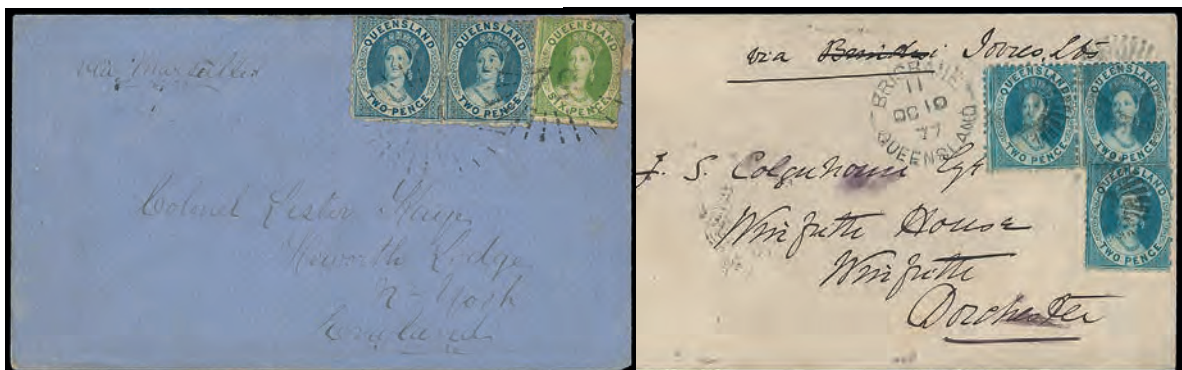 via Marseilles
QUEENSLAND
TWO PENCE
QUEENSLAND
TWO PENCE
QUEENSLAND
SIX PENCE
Colonel Lester Kaye
Heworth Lodge
N-York
England
via Brindisi
BRISBANE
11
OC 10
77
QUEENSLAND
QUEENSLAND
TWO PENCE
QUEENSLAND
TWO PENCE
QUEENSLAND
TWO PENCE
J. S. Colquhoun Esq
Winfrith House
Winfrith
Dorchester